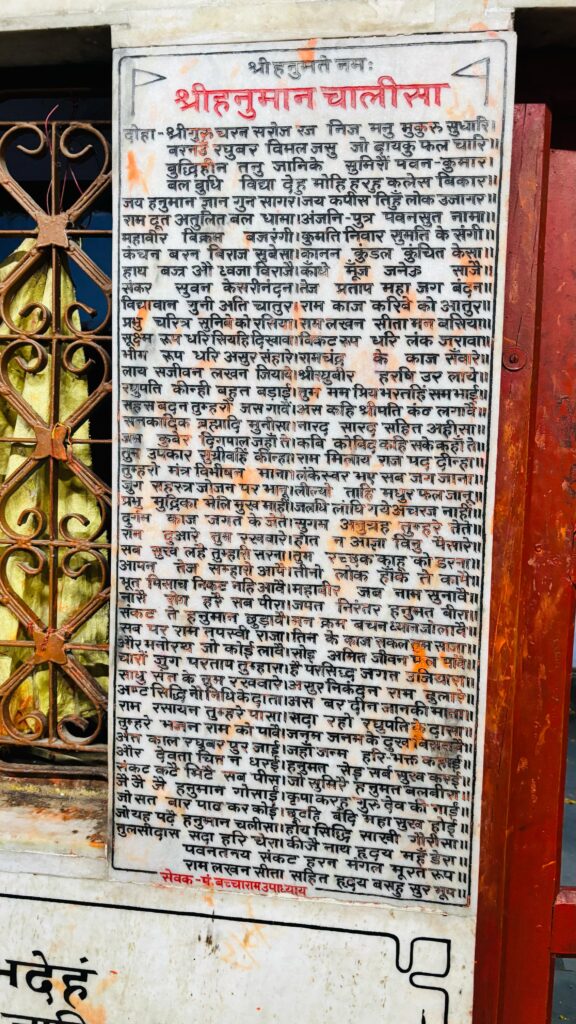 श्री हनुमते नमः
श्री हनुमान चालीसा
दोहा-श्रीगुरु चरन सरोज रज निज मनु मुकुरु सुधारि।
बरनउँ रघुबर विमल जसु जो दायकु फल चारि॥
बुद्धिहीन तनु जानिके सुमिरौं पवन-कुमार
बल बुधि विद्या देहु मोहि हरहु कलेस बिकार
जय हनुमान ज्ञान गुन सागर।जय कपीस तिहुँ लोक उजागर
राम दूत अतुलित बल धामा।अंजनि-पुत्र पवनसुत नामा॥
महावीर बिक्रम बजरंगी।कुमति निवार सुमति के संगी
कंचन बरन बिराज सुबेसा।कानन कुंडल कुंचित केसा॥
हाथ बज्र औ ध्वजा विराजै।काँधे मूंज जनेऊ साजै
संकर सुवन केसरीनंदन।तेज प्रताप महा जग बंदन॥
विद्यावान गुनी अति चातुर।राम काज करिवे को आतुर॥
प्रभु चरित्र सुनिबे को रसिया।राम लखन सीता मन बसिया॥
सूक्ष्म रूप धरि सियहि दिखावा।विकट रूप धरि लंक जरावा॥
भीम रूप धरि असुर संहारे।रामचंद्र के काज सँवारे॥
लाय सजीवन लखन जियाये।श्रीरघुबीर हरषि उर लाये॥
रघुपति कीन्ही बहुत बड़ाई।तुम मम प्रिय भरतहि सम भाई॥
सहस बदन तुम्हरो जस गावैं।अस कहि श्रीपति कंठ लगावैं॥
सनकादिक ब्रह्मादि मुनीसा।नारद सारद सहित अहीसा॥
जम कुबेर दिगपाल जहाँ ते।कबि कोबिद कहि सके कहाँ ते॥
तुम उपकार सुग्रीवहिं कीन्हा।राम मिलाय राज पद दीन्हा॥
तुम्हरो मंत्र विभीषन माना।लंकेस्वर भए सब जग जाना॥
जुग सहस्त्र जोजन पर भानू।लील्यो ताहि मधुर फल जानू॥
प्रभु मुद्रिका मेलि मुख माहीं।जलधि लाँघि गये अचरज नाहीं॥
दुर्गम काज जगत के जेते।सुगम अनुग्रह तुम्हरे तेते॥
राम दुआरे तुम रखवारे।होत न आज्ञा बिनु पैसारे॥
सब सुख लहै तुम्हारी सरना।तुम रच्छक काहू को डरना॥
आपन तेज सम्हारो आपै।तीनो लोक हाँक ते काँपै॥
भूत पिसाच निकट नहि आवै।महाबीर जब नाम सुनावै॥
नासै रोग हरै सब पीरा।जपत निरंतर हनुमत बीरा॥
संकट ते हनुमान छुड़ावै।मन क्रम बचन ध्यान जो लावै॥
सब पर राम तपस्वी राजा।तिन के काज सकल तुम साजा॥
और मनोरथ जो कोई लावै।सोइ अमित जीवन फल पावै॥
चारों जुग परताप तुम्हारा।है परसिद्ध जगत उजियारा॥
साधु संत के तुम रखवारे।असुर निकंदन राम दुलारे॥
अष्ट सिद्धि नौ निधि के दाता।अस बर दीन जानकी माता॥
राम रसायन तुम्हरे पासा।सदा रहो रघुपति के दासा॥
तुम्हरे भजन राम को पावै।जनम जनम के दुख बिसरावै॥
अंत काल रघुबर पुर जाई।जहाँ जन्म हरि-भक्त कहाई॥
और देवता चित्त न धरई।हनुमत सेइ सर्ब सुख करई॥
संकट कटै मिटै सब पीरा।जो सुमिरै हनुमत बलबीरा॥
जै जै जै हनुमान गोसाई।कृपा करहु गुरु देव की नाई॥
जो सत बार पाठ कर कोई।छूटहि बंदि महा सुख होई॥
जो यह पढ़ै हनुमान चलीसा।होय सिद्धि साखी गौरीसा॥
तुलसीदास सदा हरि चेरा।कीजै नाथ हृदय महँ डेरा॥
पवनतनय संकट हरन मंगल मूरति रूप॥
राम लखन सीता सहित हृदय बसहु सुर भूप॥
सेवक-पं. बच्चाराम उपाध्याय
देहं